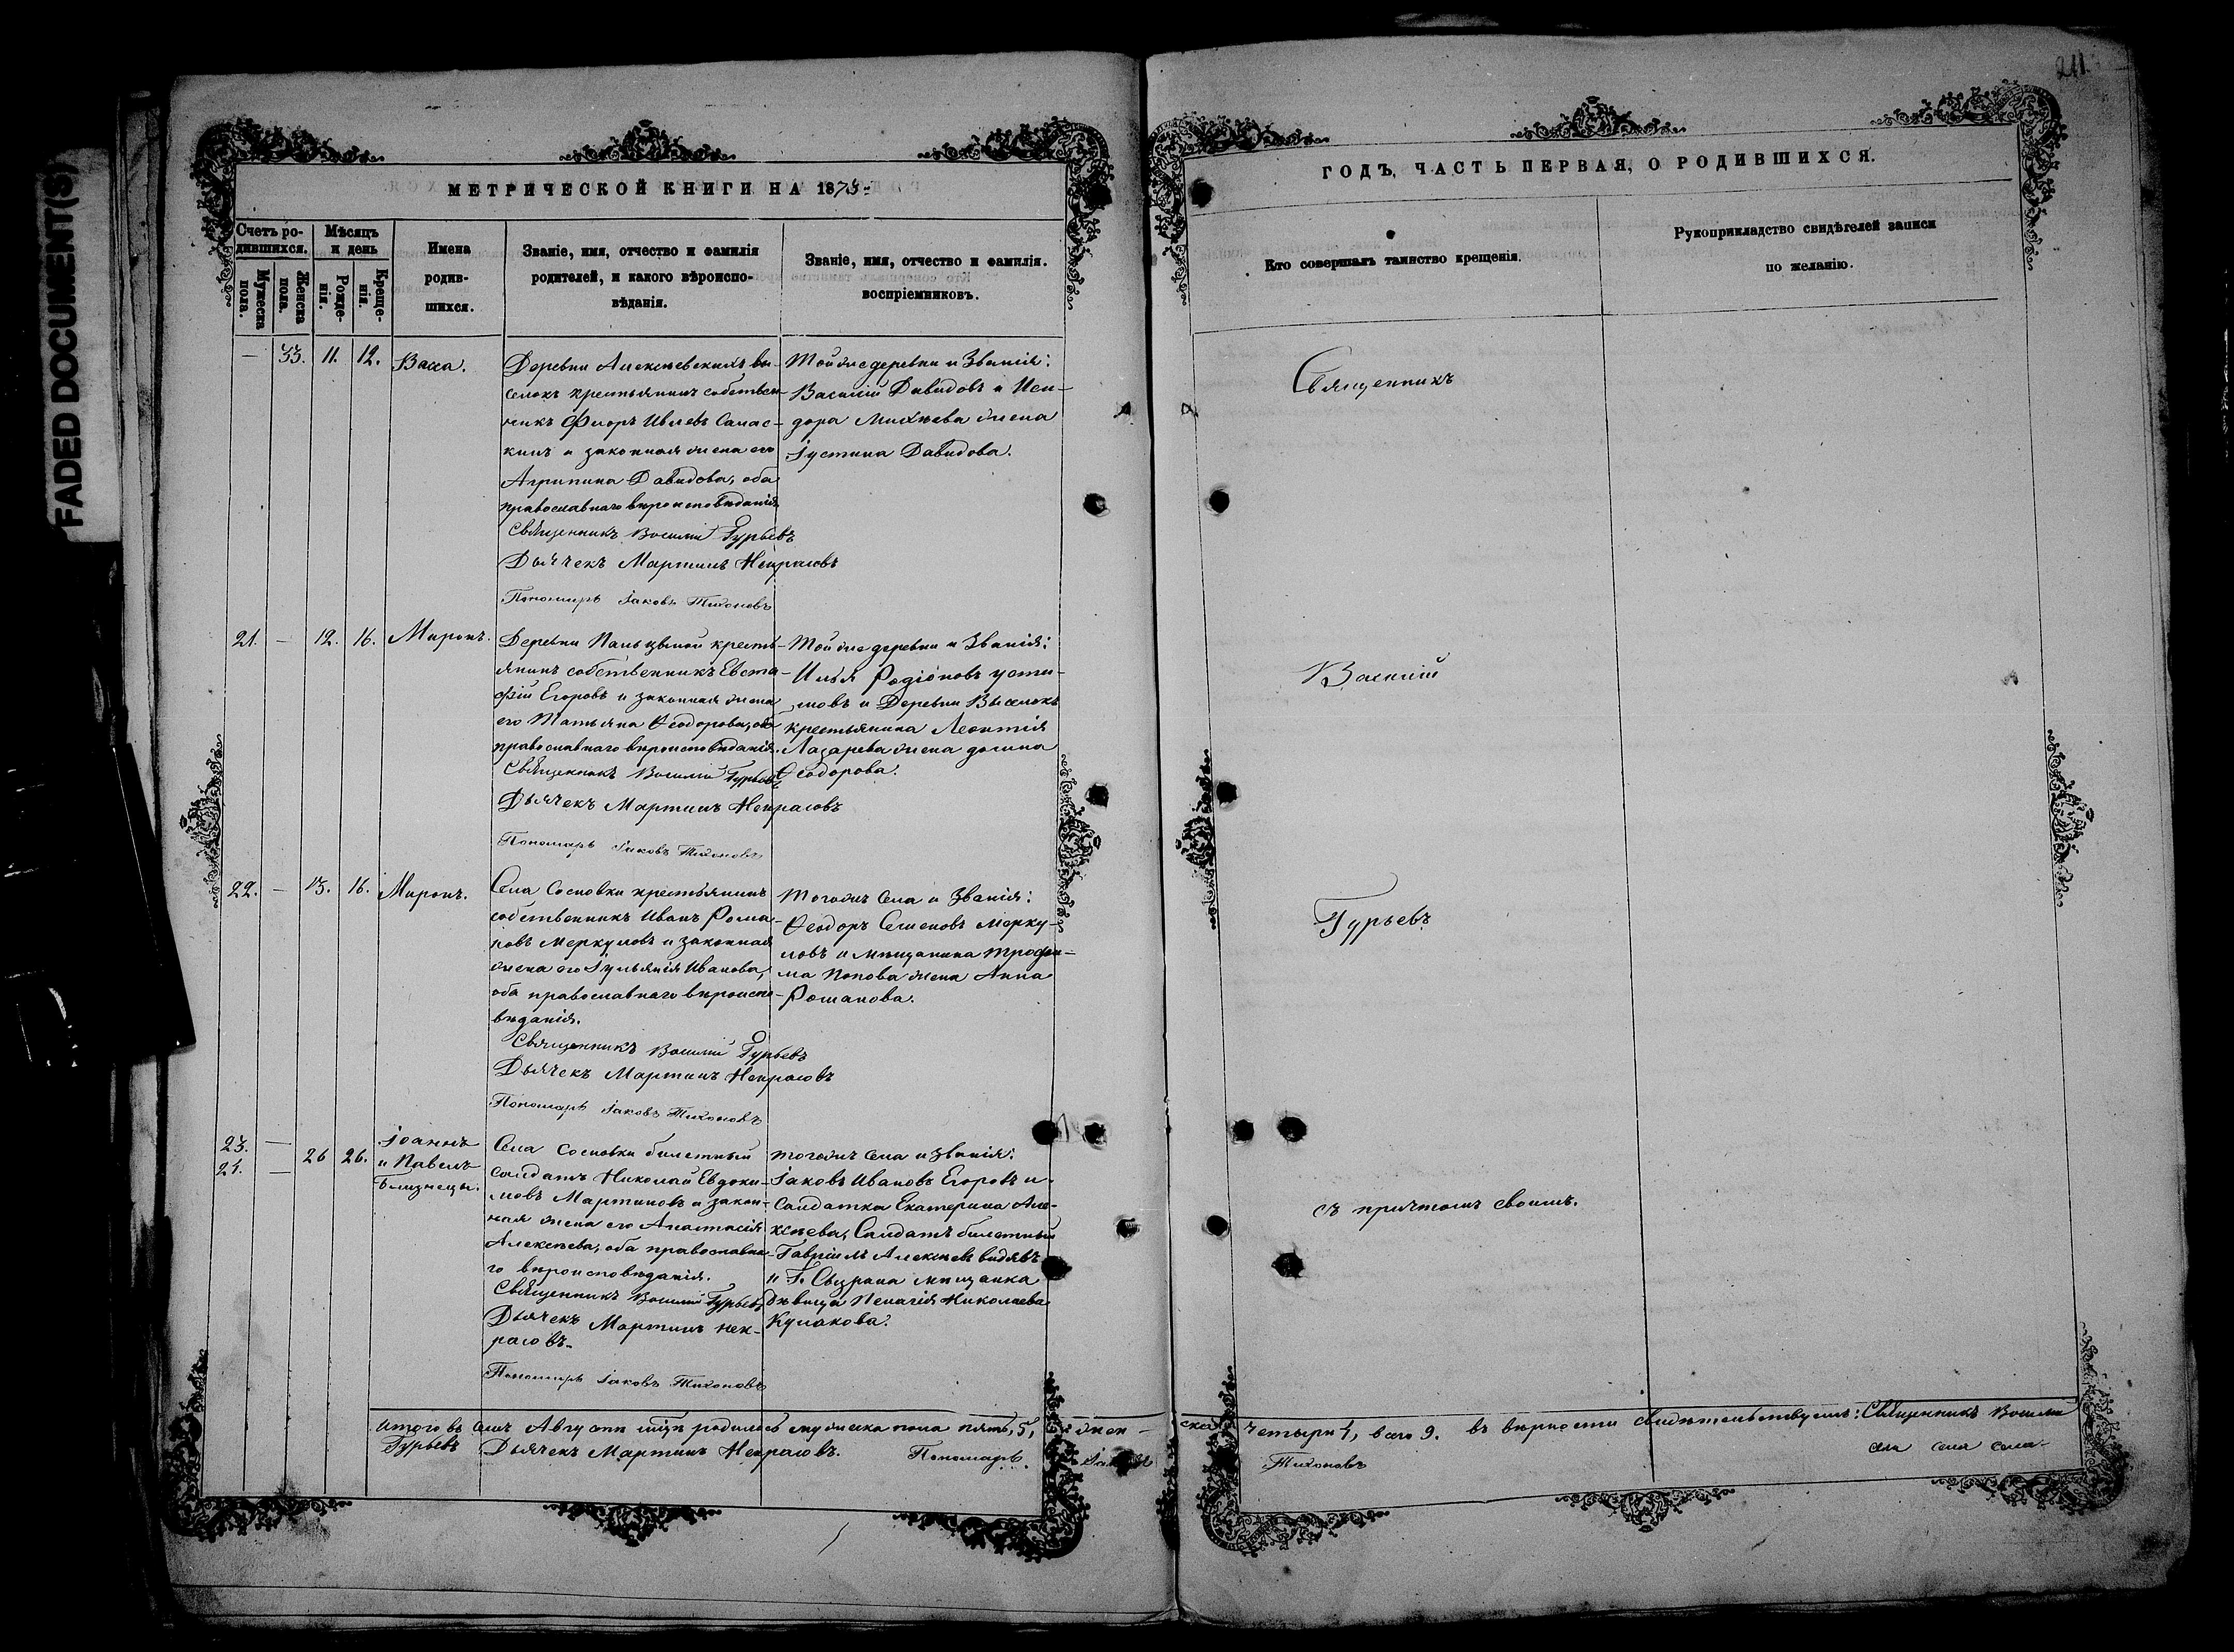 FADED DOCUMENT(S)
211.
МЕТРИЧЕСКОЙ КНИГИ НА 187
ГОДЪ, ЧАСТЬ ПЕРВАЯ, О РОДИВШИХСЯ.
Счетъ ро-
дившихся.
Мужеска
пола.
Женска
пола.
Мѣсяцъ
и день
Рожде-
нія.
Креще-
нія.
Имена
родив-
шихся.
Званіе, имя, отчество и фамилія
родителей, и какого вѣроиспо-
вѣданія.
Званіе, имя, отчество и фамилія.
воспріемниковъ.
Кто совершалъ таинство крещенія.
Рукоприкладство свидѣтелей записи
по желанію.
— 33. 11. 12. Васса.
Деревни Алексѣевскихъ вы-
селокъ крестьянинъ собствен-
никъ Флоръ Ивлевъ
и законная жена его
Агрипина Давидова, оба
православнаго вѣроисповѣданія
Священникъ Василій Гурьевъ
Дьячекъ Мартинъ Некрасовъ
Пономарь Іаковъ Тихоновъ
Тойже деревни и Званія:
Василій Давидовъ и Иси-
дора Михѣева жена
Іустина Давидова.
21. — 12. 16. Миронъ.
Деревни крестьь-
янинъ собственникъ Евста-
фій Егоровъ и законная жена
его Татьяна Ѳеодорова, оба
православнаго вѣроисповѣданія.
Священникъ Василій Гурьевъ
Дьячекъ Мартинъ Некрасовъ
Пономарь Іаковъ Тихоновъ
Тойже деревни и Званія:
Илья Родіоновъ усти-
новъ и Деревни Выселокъ
крестьянина Леонтія
Лазарева жена домна
Ѳеодорова.
22. — 15. 16. Миронъ.
Села Сосновки крестьянинъ
собственникъ Иванъ Рома-
новъ Меркуловъ и законная
жена его Іульянія Иванова,
оба православнаго вѣроиспо-
вѣданія.
Священникъ Василій Гурьевъ
Дьячекъ Мартинъ Некрасовъ
Пономарь Іаковъ Тихоновъ
тогожъ Села и Званія:
Ѳеодоръ Семеновъ Мерку-
ловъ и мѣщанина трофи-
ма Попова жена Анна
Романова.
23. —
24. —
26 26.
Іоаннъ
и Павелъ
Близнецы.
Села Сосновки билетный
Солдатъ Николай Евдоки-
мовъ Мартиновъ и закон-
ная жена его Анастасія
Алексѣева, оба православна-
го вѣроисповѣданія.
Священникъ Василій Гурьевъ
Дьячекъ Мартинъ Нек-
расовъ.
Пономарь Іаковъ Тихоновъ
тогожъ Села и званія:
Іаковъ Ивановъ Егоровъ и
Солдатка Екатерина Але-
ксѣева, Солдатъ билетный
Гавріилъ Алексѣевъ
и Г. Сызрана мѣщанка
дѣвица Пелагія Николаева
Кулакова.
Священникъ
Василій
Гурьевъ
съ причтомъ своимъ.
Итого въ семъ Августѣ мѣсяцѣ родилось мужеска пола пять, 5, женска четыри 4, всего 9. въ вѣрности свидѣтельствуемъ: Священникъ Василій
Гурьевъ Дьячекъ Мартинъ Некрасовъ. Пономарь Іаковъ Тихоновъ